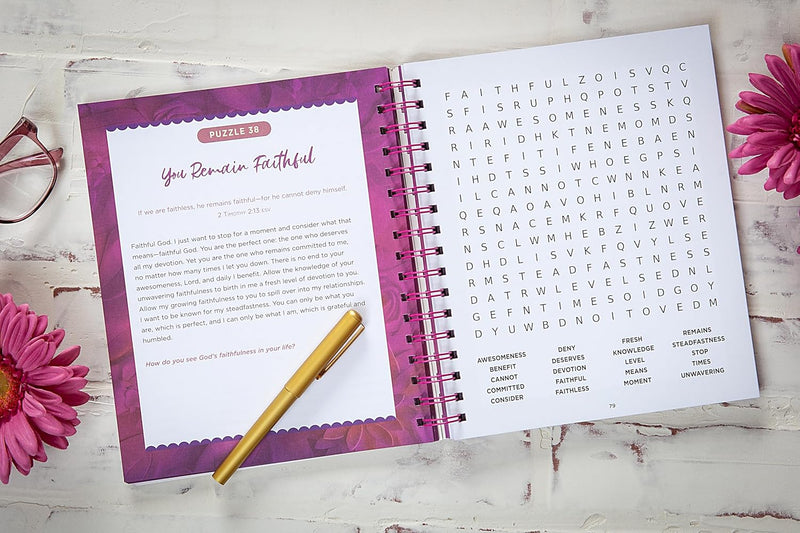 PUZZLE 38
You Remain Faithful
If we are faithless, he remains faithful—for he cannot deny himself.
2 Timothy 2:13 ESV
Faithful God, I just want to stop for a moment and consider what that
means—faithful God. You are the perfect one; the one who deserves
all my devotion. Yet you are the one who remains committed to me,
no matter how many times I let you down. There is no end to your
awesomeness, Lord, and daily I benefit. Allow the knowledge of your
unwavering faithfulness to birth in me a fresh level of devotion to you.
Allow my growing faithfulness to you to spill over into my relationships.
I want to be known for my steadfastness. You can only be what you
are, which is perfect, and I can only be what I am, which is grateful and
humbled.
How do you see God's faithfulness in your life?
F A I T H F U L Z O I S V Q C
S F I S R U P H Q P O T S T V
R A A W E S O M E N E S S K Q
R I R I D H K T N E M O M D S
N T E F I T I F E N E B A E N
I H D T S S I W H O E G P S I
I L C A N N O T C W N N K E A
Q E Q A O A V O H I B L N R M
R S N A C E M K R F Q U O V E
N S C L W M H E B Z I Z W E R
D H D L I S V K F Q V Y L S E
R M S T E A D F A S T N E S S
D A T R W L E V E L S E D N L
G E F N T I M E S O I D G O Y
D Y U W B D N O I T O V E D M
AWESOMENESS
BENEFIT
CANNOT
COMMITTED
CONSIDER
DENY
DESERVES
DEVOTION
FAITHFUL
FAITHLESS
FRESH
KNOWLEDGE
LEVEL
MEANS
MOMENT
REMAINS
STEADFASTNESS
STOP
TIMES
UNWAVERING
79